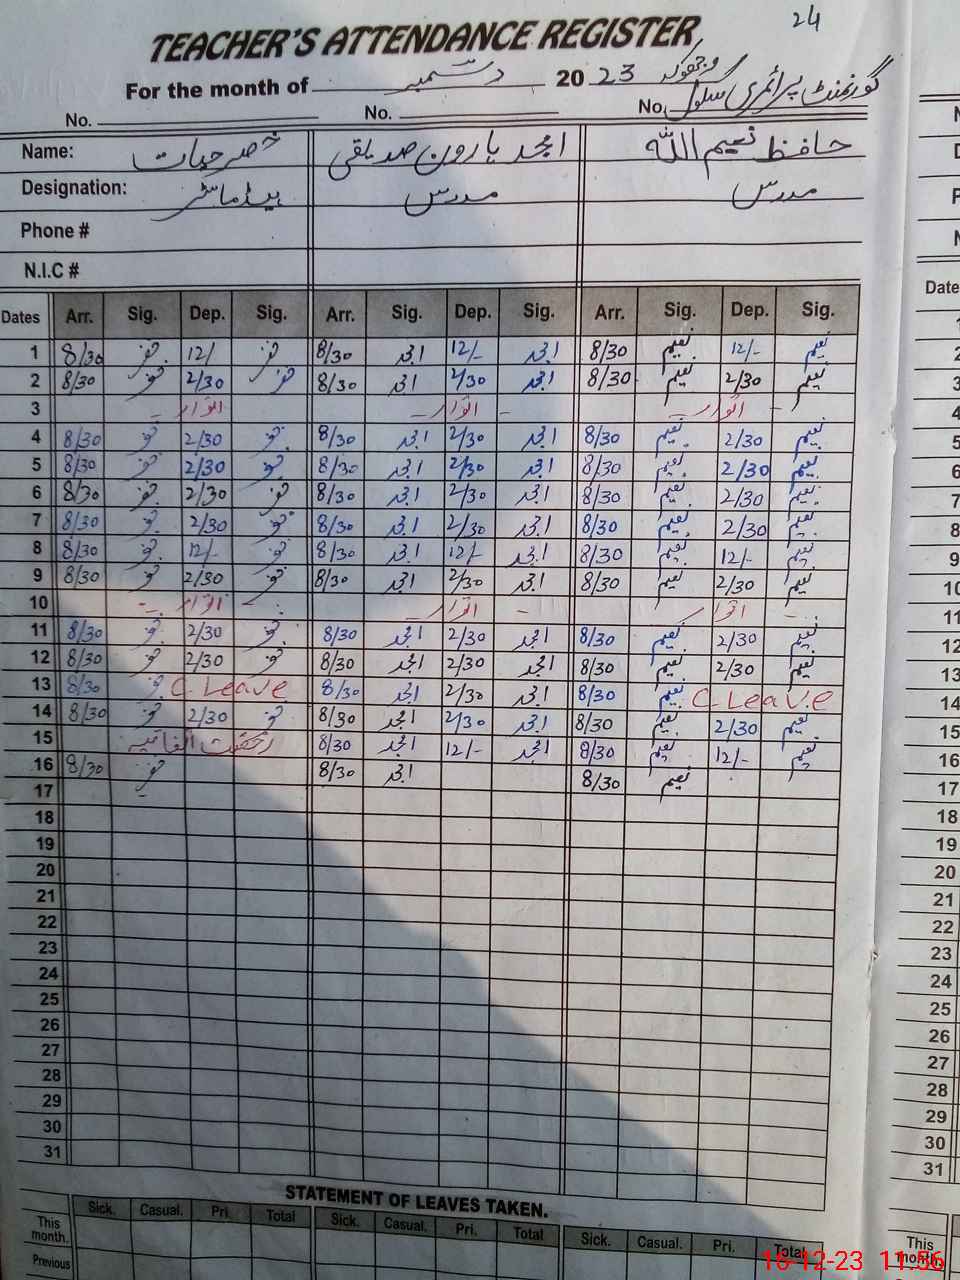 24
TEACHER'S ATTENDANCE REGISTER
For the month of دسمبر 2023
گورنمنٹ پرائمری سکول
No. No. No.
Name: خضر حیات امجد ہارون صدیقی حافظ نعیم اللہ
Designation: ہیڈ ماسٹر مدرس مدرس
Phone #
N.I.C #
Dates Arr. Sig. Dep. Sig. Arr. Sig. Dep. Sig. Arr. Sig. Dep. Sig.
1 8/30 12/ 8/30 امجد 12/- امجد 8/30 نعیم 12/- نعیم
2 8/30 2/30 8/30 امجد 2/30 امجد 8/30 نعیم 2/30 نعیم
3 اتوار اتوار اتوار
4 8/30 2/30 8/30 امجد 2/30 امجد 8/30 نعیم 2/30 نعیم
5 8/30 2/30 8/30 امجد 2/30 امجد 8/30 نعیم 2/30 نعیم
6 8/30 2/30 8/30 امجد 2/30 امجد 8/30 نعیم 2/30 نعیم
7 8/30 2/30 8/30 امجد 2/30 امجد 8/30 نعیم 2/30 نعیم
8 8/30 12/- 8/30 امجد 12/- امجد 8/30 نعیم 12/- نعیم
9 8/30 2/30 8/30 امجد 2/30 امجد 8/30 نعیم 2/30 نعیم
10 اتوار اتوار اتوار
11 8/30 2/30 8/30 امجد 2/30 امجد 8/30 نعیم 2/30 نعیم
12 8/30 2/30 8/30 امجد 2/30 امجد 8/30 نعیم 2/30 نعیم
13 8/30 C.Leave 8/30 امجد 2/30 امجد 8/30 نعیم C.Leave
14 8/30 2/30 8/30 امجد 2/30 امجد 8/30 نعیم 2/30 نعیم
15 رخصت اتفاقیہ 8/30 امجد 12/- امجد 8/30 نعیم 12/- نعیم
16 8/30 8/30 امجد 8/30 نعیم
17
18
19
20
21
22
23
24
25
26
27
28
29
30
31
STATEMENT OF LEAVES TAKEN.
Sick. Casual. Pri. Total Sick. Casual. Pri. Total Sick. Casual. Pri. Total
This month.
Previous
Dates
2
3
4
5
6
7
8
9
10
11
12
13
14
15
16
17
18
19
20
21
22
23
24
25
26
27
28
29
30
31
This month.
18-12-23 11:56